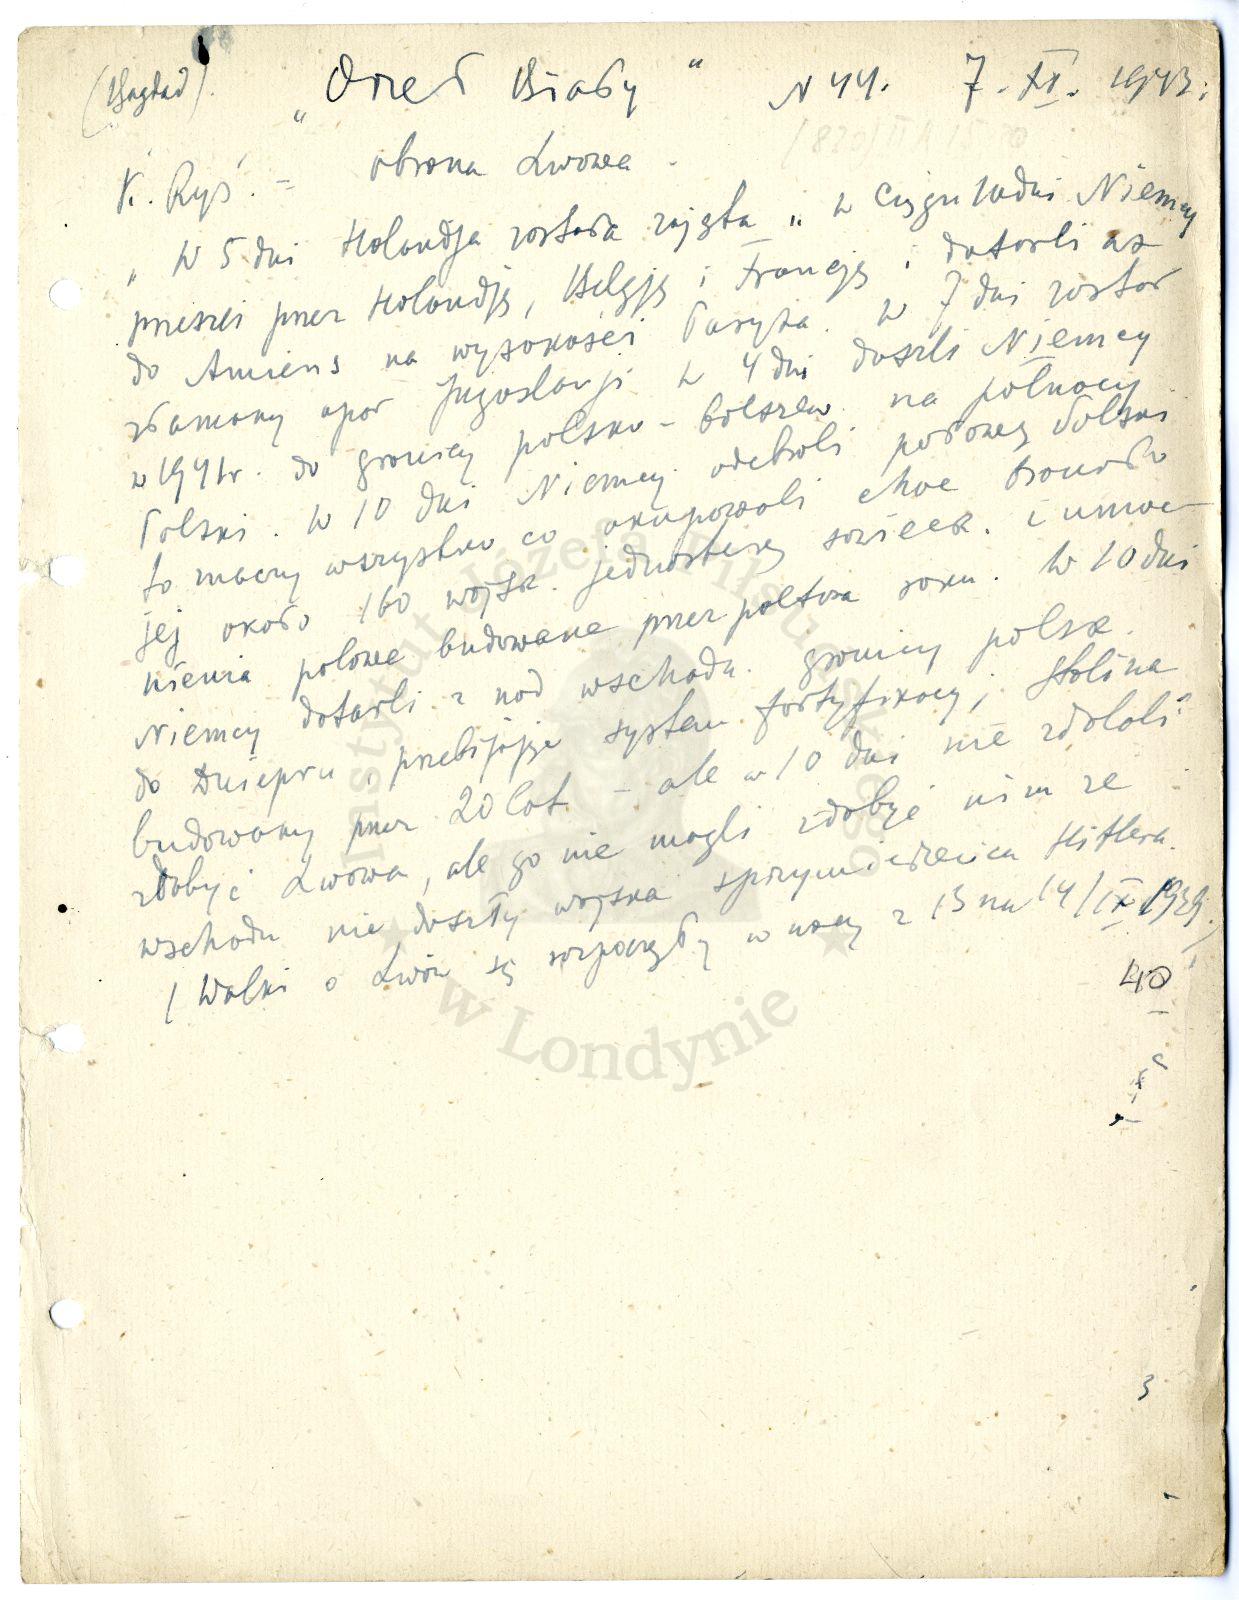 (Bagdad). „Orzeł Biały" N 44. 7. XI. 1943.
K. Ryś. = obrona Lwowa.
„W 5 dni Holandja została zajęta „w ciągu 10 dni Niemcy
przeszli przez Holandję, Belgję i Francję i dotarli aż
do Amiens na wysokości Paryża. W 7 dni został
złamany opór Jugosławji. W 4 dni doszli Niemcy
w 1941 r. do granicy polsko-bolszew. na północy
Polski. W 10 dni Niemcy odebrali połowę Polski
to znaczy wszystko co okupowali choć broniło
jej około 160 wojsk. jednostek sowieck. i umoc-
nienia polowe budowane przez półtora roku. W 10 dni
Niemcy dotarli z nad wschodn. granicy polsk.
do Dniepru, przebijając system fortyfikacyj Stalina
budowany przez 20 lat - ale w 10 dni nie zdołali
zdobyć Lwowa, ale go nie mogli zdobyć nim ze
wschodu nie doszły wojska sprzymierzeńca Hitlera.
/Walki o Lwów się rozpoczęły w nocy z 13 na 14/IX 1939./
40
3
Instytut Józefa Piłsudskiego
w Londynie